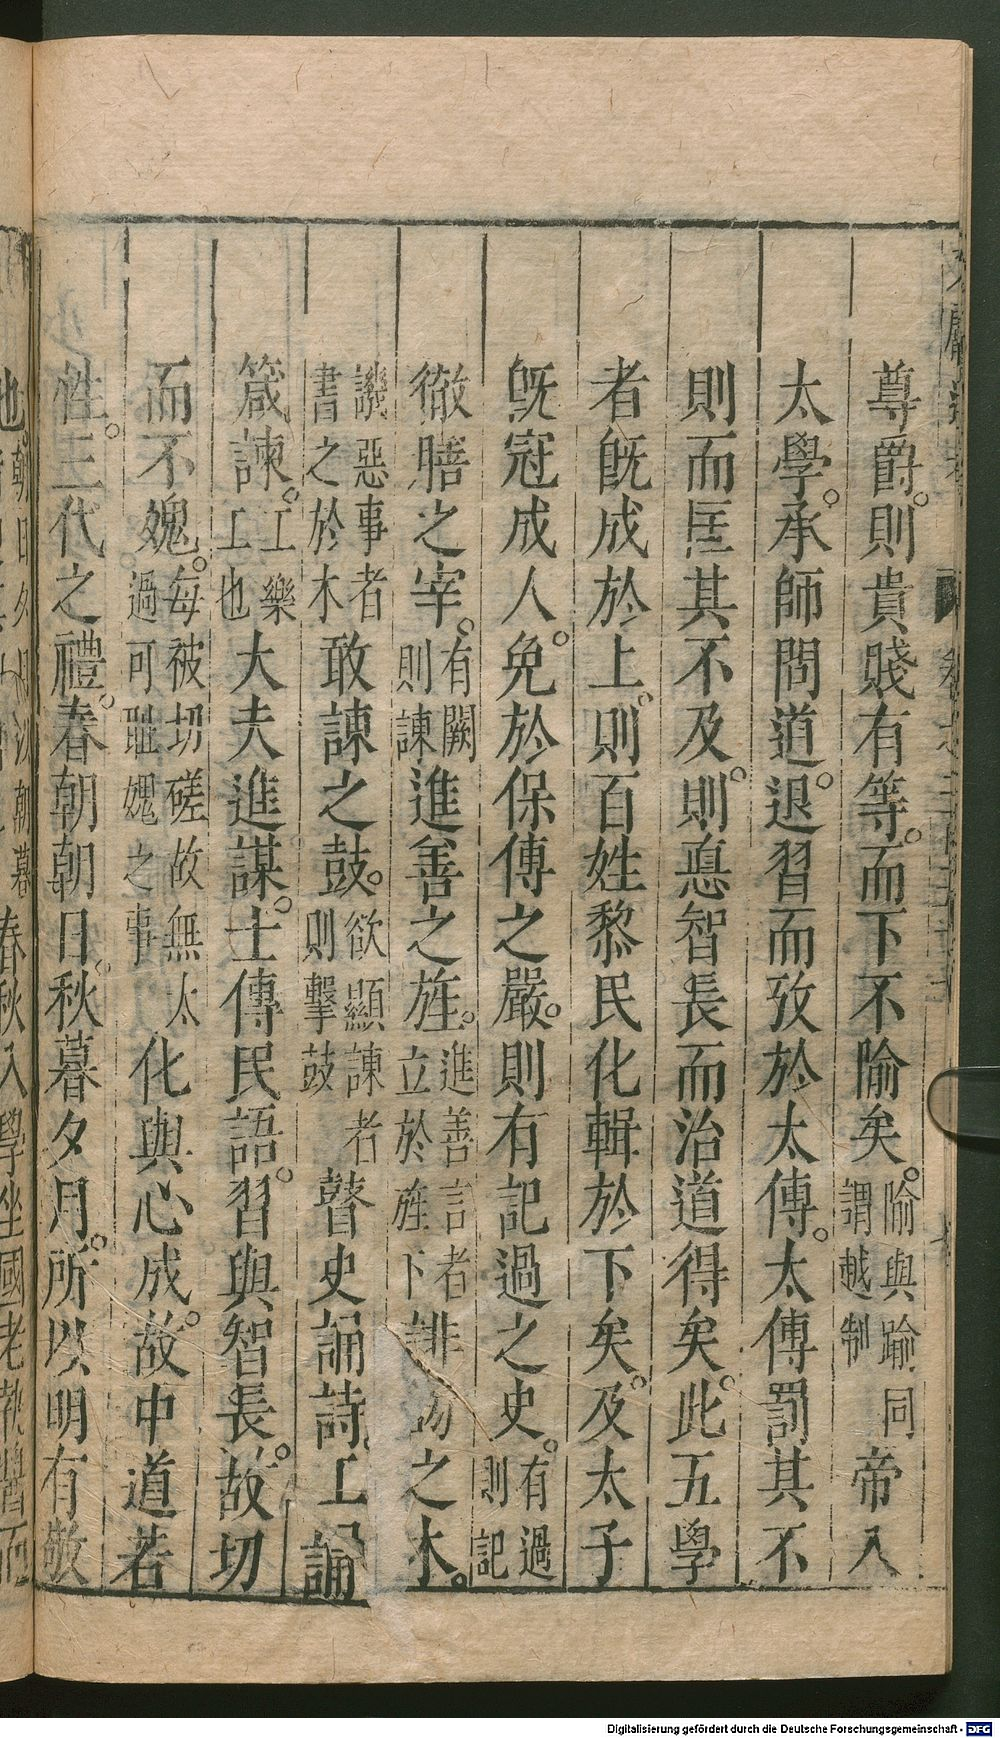 尊爵。則貴賤有等。而下不隃矣。隃與踰同謂越制帝入
太學。承師問道。退習而攷於太傅。太傅罰其不
則而匡其不及。則悳智長而治道得矣。此五學
者旣成於上。則百姓黎民化輯於下矣。及太子
旣冠成人。免於保傅之嚴。則有記過之史。有過則記
徹膳之宰。有闕則諫進善之旌。進善言者立於旌下誹謗之木。
譏惡事者書之於木敢諫之鼓。欲顯諫者則擊鼓瞽史誦詩。工誦
箴諫。工樂工也大夫進謀。士傳民語。習與智長。故切
而不媿。每被切磋故無太過可恥媿之事化與心成。故中道若
性。三代之禮。春朝朝日。秋暮夕月。所以明有敬
也。朝日夕月以朝暮春秋入學坐國老執醬而
Digitalisierung gefördert durch die Deutsche Forschungsgemeinschaft - DFG